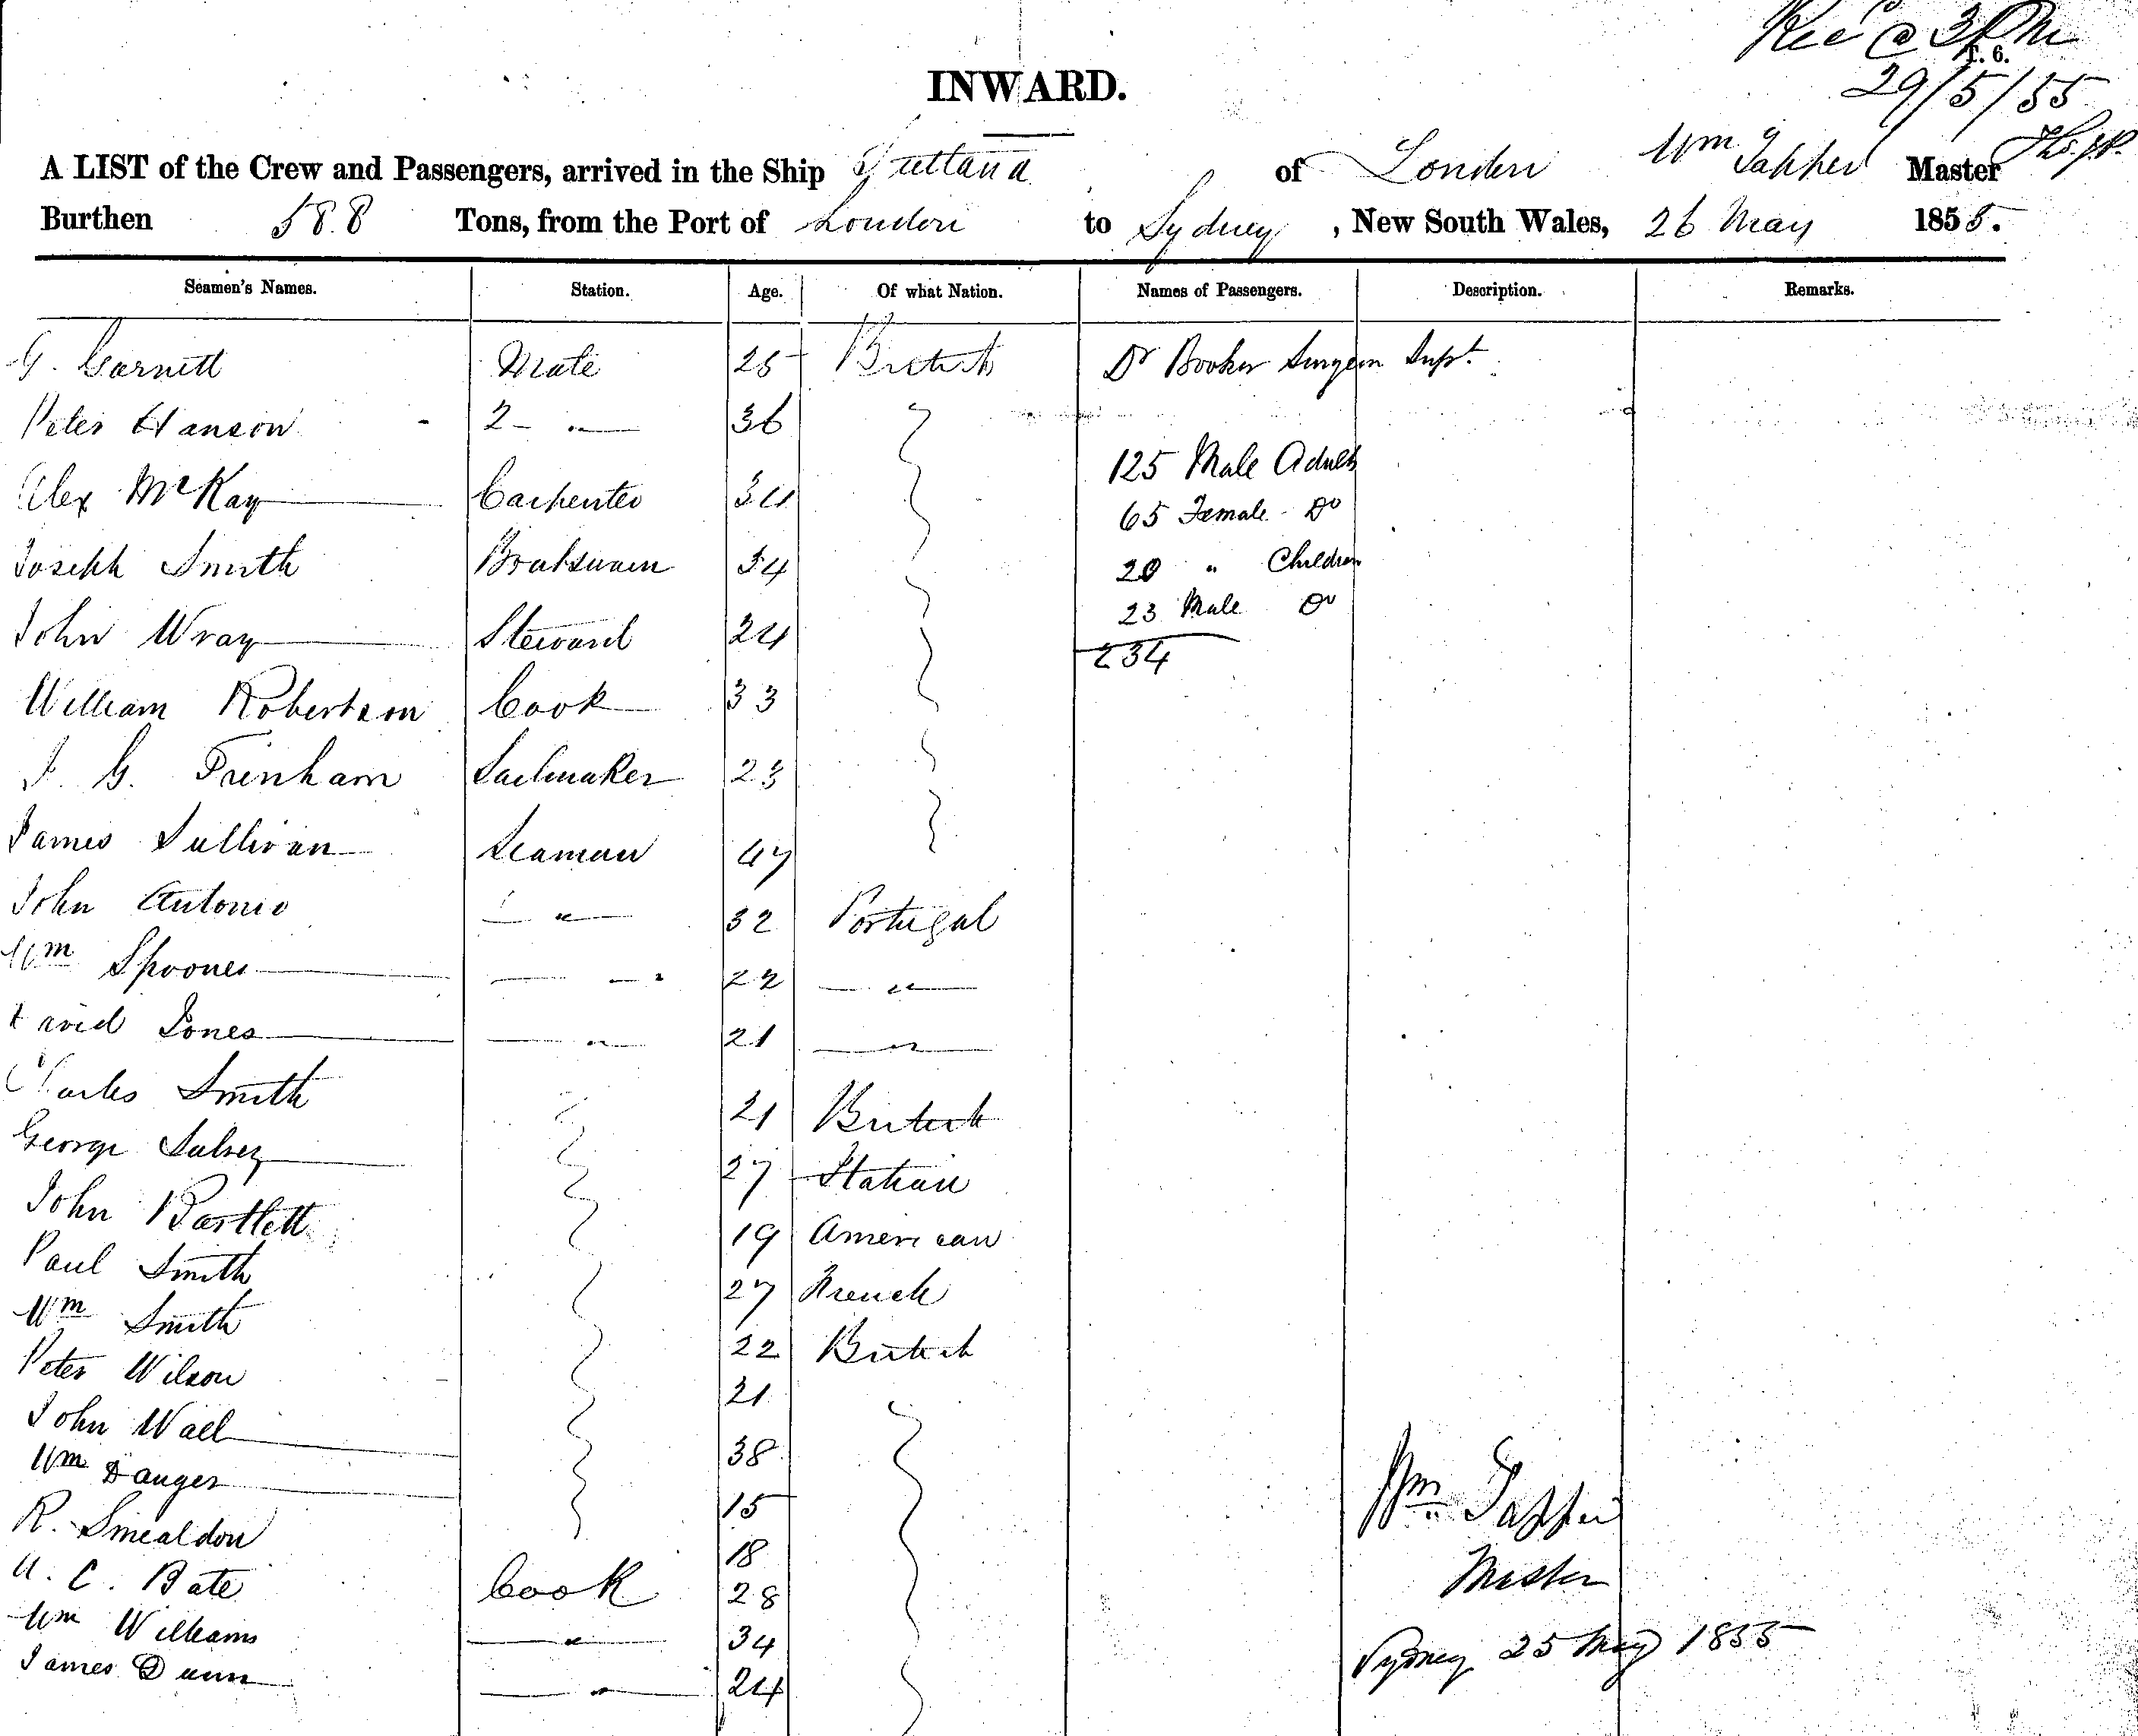 Rec @ 3 PM
T. 6.
29/5/55
INWARD.
A LIST of the Crew and Passengers, arrived in the Ship Sultana of London Wm Tapper Master
Burthen 588 Tons, from the Port of London to Sydney, New South Wales, 26 May 1855.
Seamen's Names. Station. Age. Of what Nation. Names of Passengers. Description. Remarks.
G. Garnett Mate 25 British Dr Booker Surgeon Supt.
Peter Hanson 2 - " 36
125 Male Adults
Alex McKay Carpenter 34
65 Female Do
Joseph Smith Boatswain 34
20 " Children
23 Male Do
John Wray Steward 24
234
William Robertson Cook 33
J. G. Frinham Sailmaker 23
James Sullivan Seaman 47
John Antonio " 32 Portugal
Wm Spooner " 22 "
David Jones " 21 "
Charles Smith 21 British
George 27 Italian
John Bartlett 19 American
Paul Smith 27 French
Wm Smith 22 British
Peter Wilson 21
John Wall 38
Wm Danger 15
R. Smealdon 18
C. Bate Cook 28
Wm Williams " 34
James Dunn " 24
Wm Tapper
Master
Sydney 25 May 1855